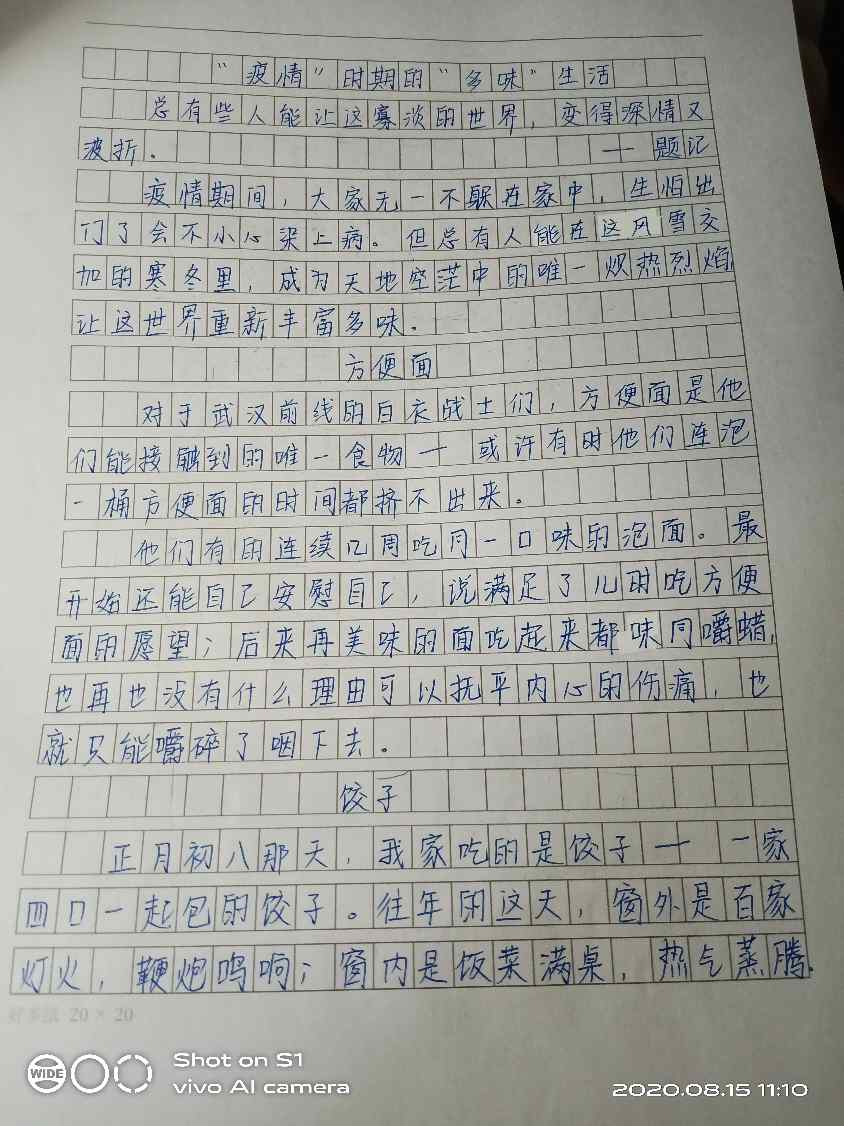 “疫情”时期的“多味”生活
总有些人能让这寡淡的世界，变得深情又
波折。——题记
疫情期间，大家无一不躲在家中，生怕出
门了会不小心染上病。但总有人能在这风雪交
加的寒冬里，成为天地空茫中的唯一炽热烈焰，
让这世界重新丰富多味。
方便面
对于武汉前线的白衣战士们，方便面是他
们能接触到的唯一食物——或许有时他们连泡
一桶方便面的时间都挤不出来。
他们有的连续几周吃同一口味的泡面。最
开始还能自己安慰自己，说满足了儿时吃方便
面的愿望；后来再美味的面吃起来都味同嚼蜡，
也再也没有什么理由可以抚平内心的伤痛，也
就只能嚼碎了咽下去。
饺子
正月初八那天，我家吃的是饺子——一家
四口一起包的饺子。往年的这天，窗外是百家
灯火，鞭炮鸣响；窗内是饭菜满桌，热气蒸腾。
20 × 20
WIDE
Shot on S1
vivo AI camera
2020.08.15 11:10